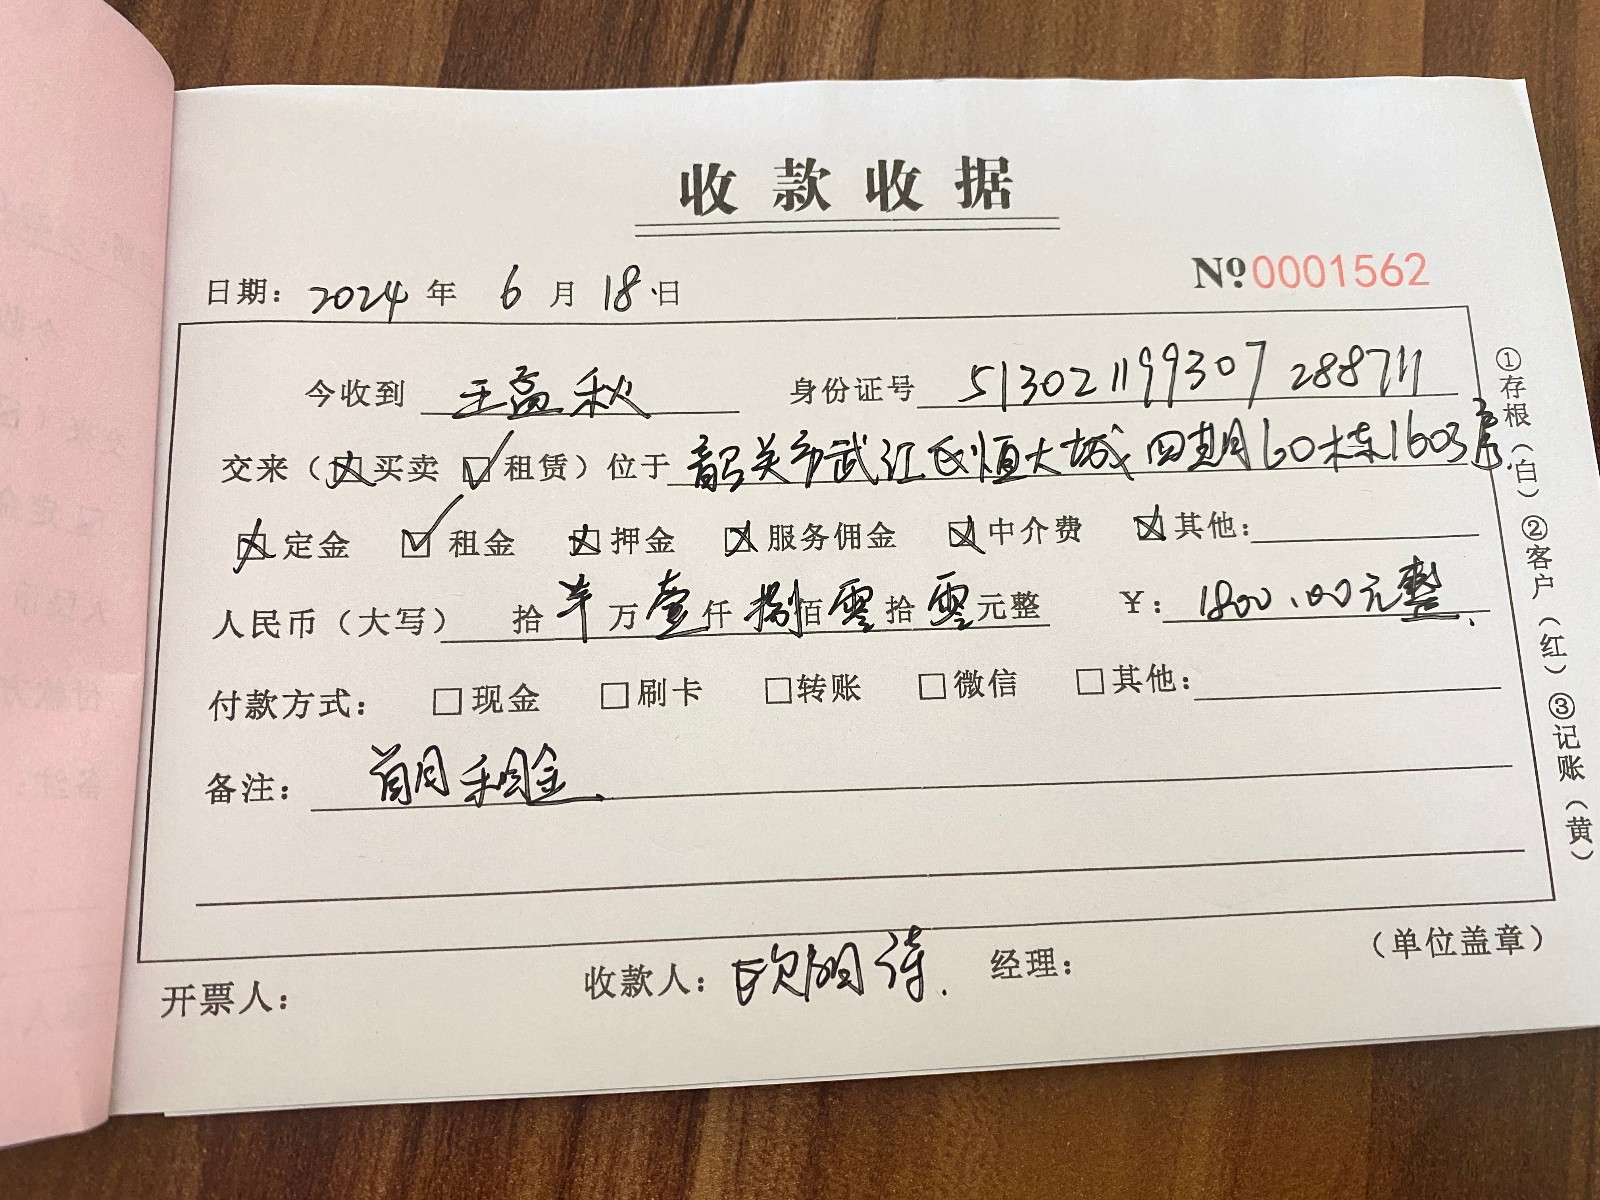 收款收据
No 0001562
日期：2024年 6月 18日
今收到 王孟秋 身份证号 513021199307288711
交来（☒买卖 ☑租赁）位于 韶关市武江区恒大城四期60栋1603房.
☒定金 ☑租金 ☒押金 ☒服务佣金 ☒中介费 ☒其他：
人民币（大写） 拾 万壹仟捌佰零拾零元整 ¥：1800.00元整.
付款方式： □现金 □刷卡 □转账 □微信 □其他：
备注： 首月租金
开票人： 收款人： 诗. 经理： （单位盖章）
①存根（白）②客户（红）③记账（黄）